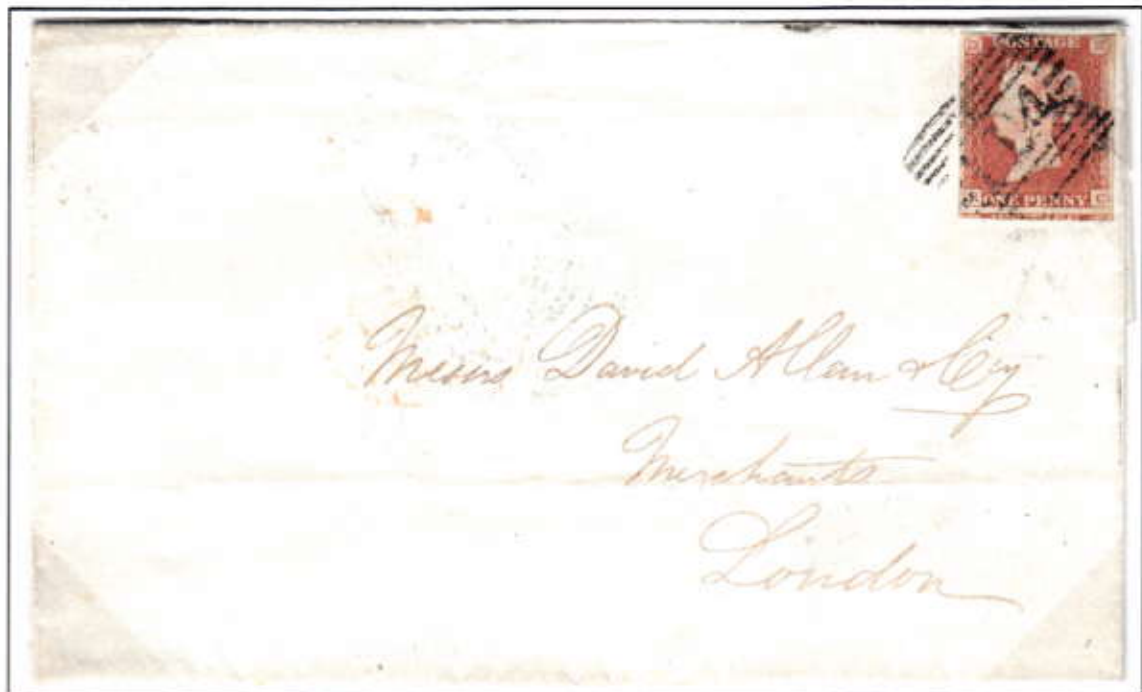 POSTAGE
ONE PENNY
Messrs David Allan & Coy
Merchants
London